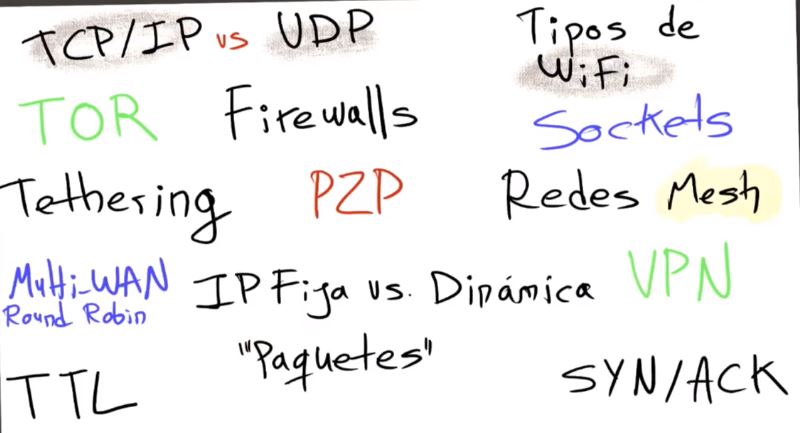 TCP/IP vs UDP
Tipos de
WiFi
TOR
Firewalls
Sockets
Tethering
P2P
Redes Mesh
Multi-WAN
Round Robin
IP Fija vs. Dinámica
VPN
"Paquetes"
TTL
SYN/ACK